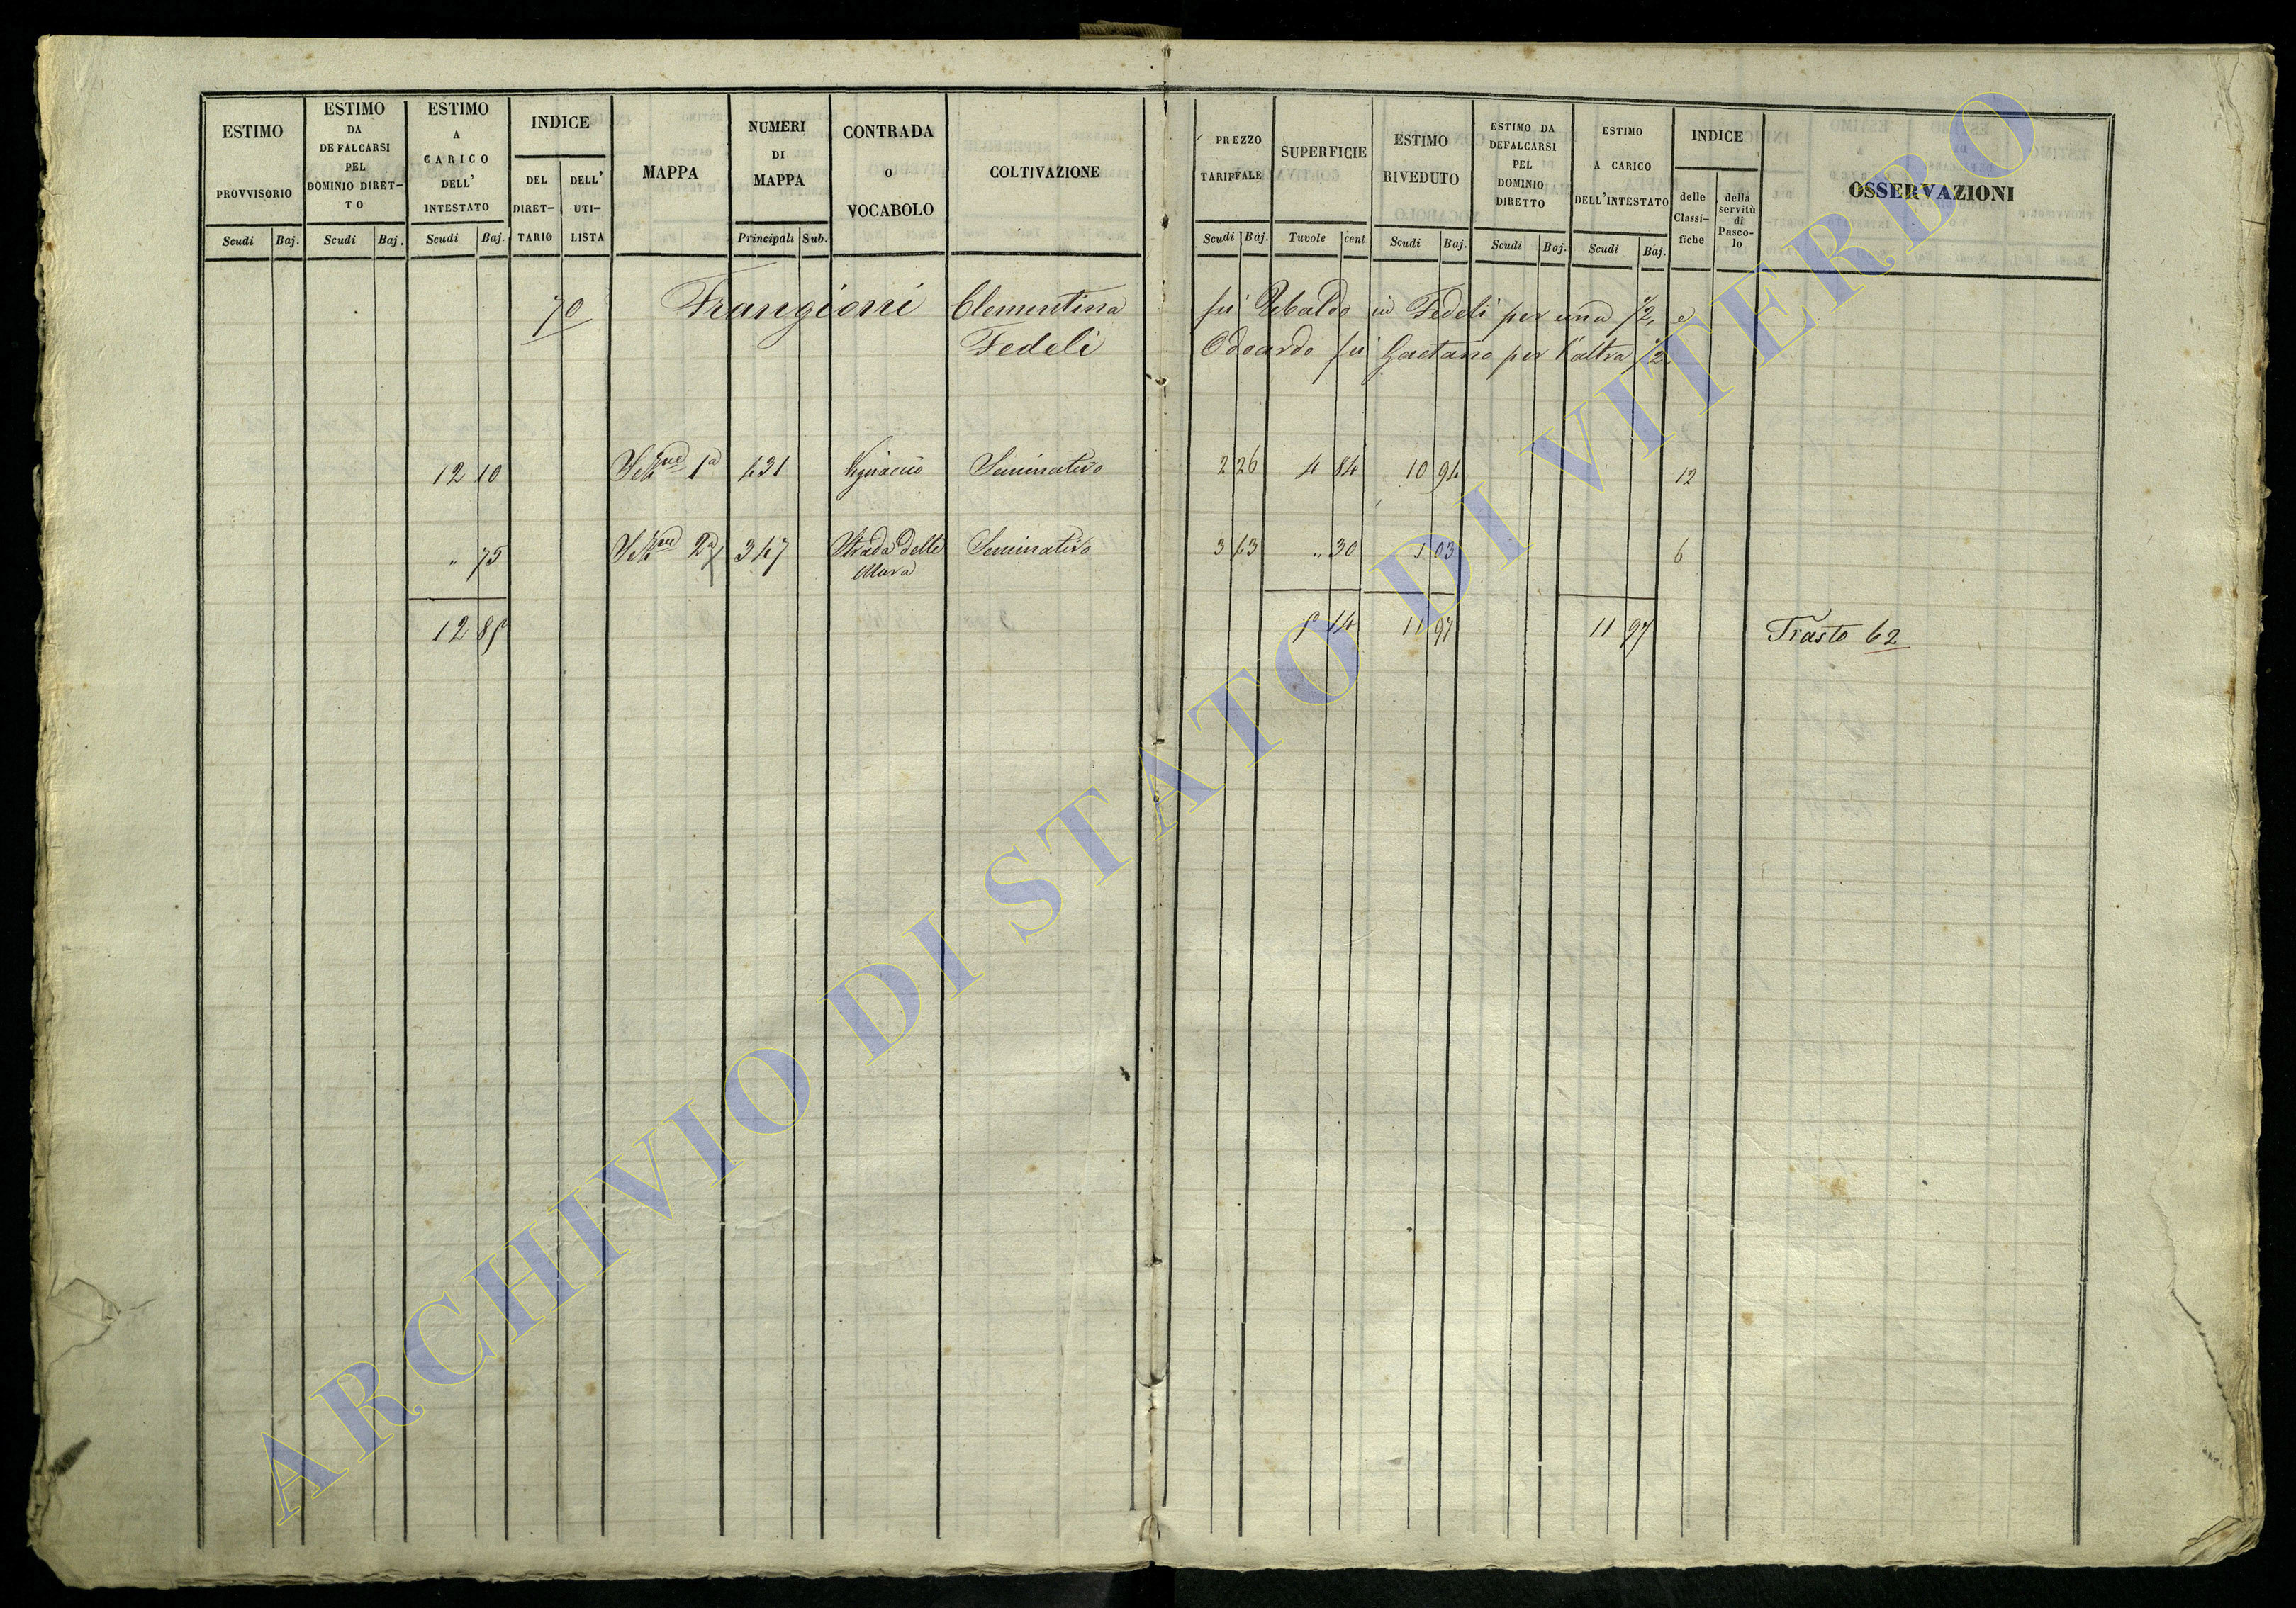 ESTIMO PROVVISORIO
Scudi Baj.
ESTIMO DA DEFALCARSI PEL DOMINIO DIRET-TO
Scudi Baj.
ESTIMO A CARICO DELL' INTESTATO
Scudi Baj.
INDICE
DEL DIRET-TARIO
DELL' UTI-LISTA
MAPPA
NUMERI DI MAPPA
Principali Sub.
CONTRADA O VOCABOLO
COLTIVAZIONE
PREZZO TARIFFALE
Scudi Baj.
SUPERFICIE
Tavole cent
ESTIMO RIVEDUTO
Scudi Baj.
ESTIMO DA DEFALCARSI PEL DOMINIO DIRETTO
Scudi Baj.
ESTIMO A CARICO DELL'INTESTATO
Scudi Baj.
INDICE
delle Classi-fiche
della servitù di Pasco-lo
OSSERVAZIONI
70 Frangioni Clementina fu Ubaldo in Fedeli per una 1/2, e
Fedeli Odoardo fu Gaetano per l'altra 1/2
12 10 Sez.ne 1a 431 Seminativo 2 26 4 84 10 94 12
" 75 Sez.ne 2a 347 Strada delle Mura Seminativo 3 43 " 30 1 03 6
12 85 5 14 11 97 11 97 Trasto 62
ARCHIVIO DI STATO DI VITERBO